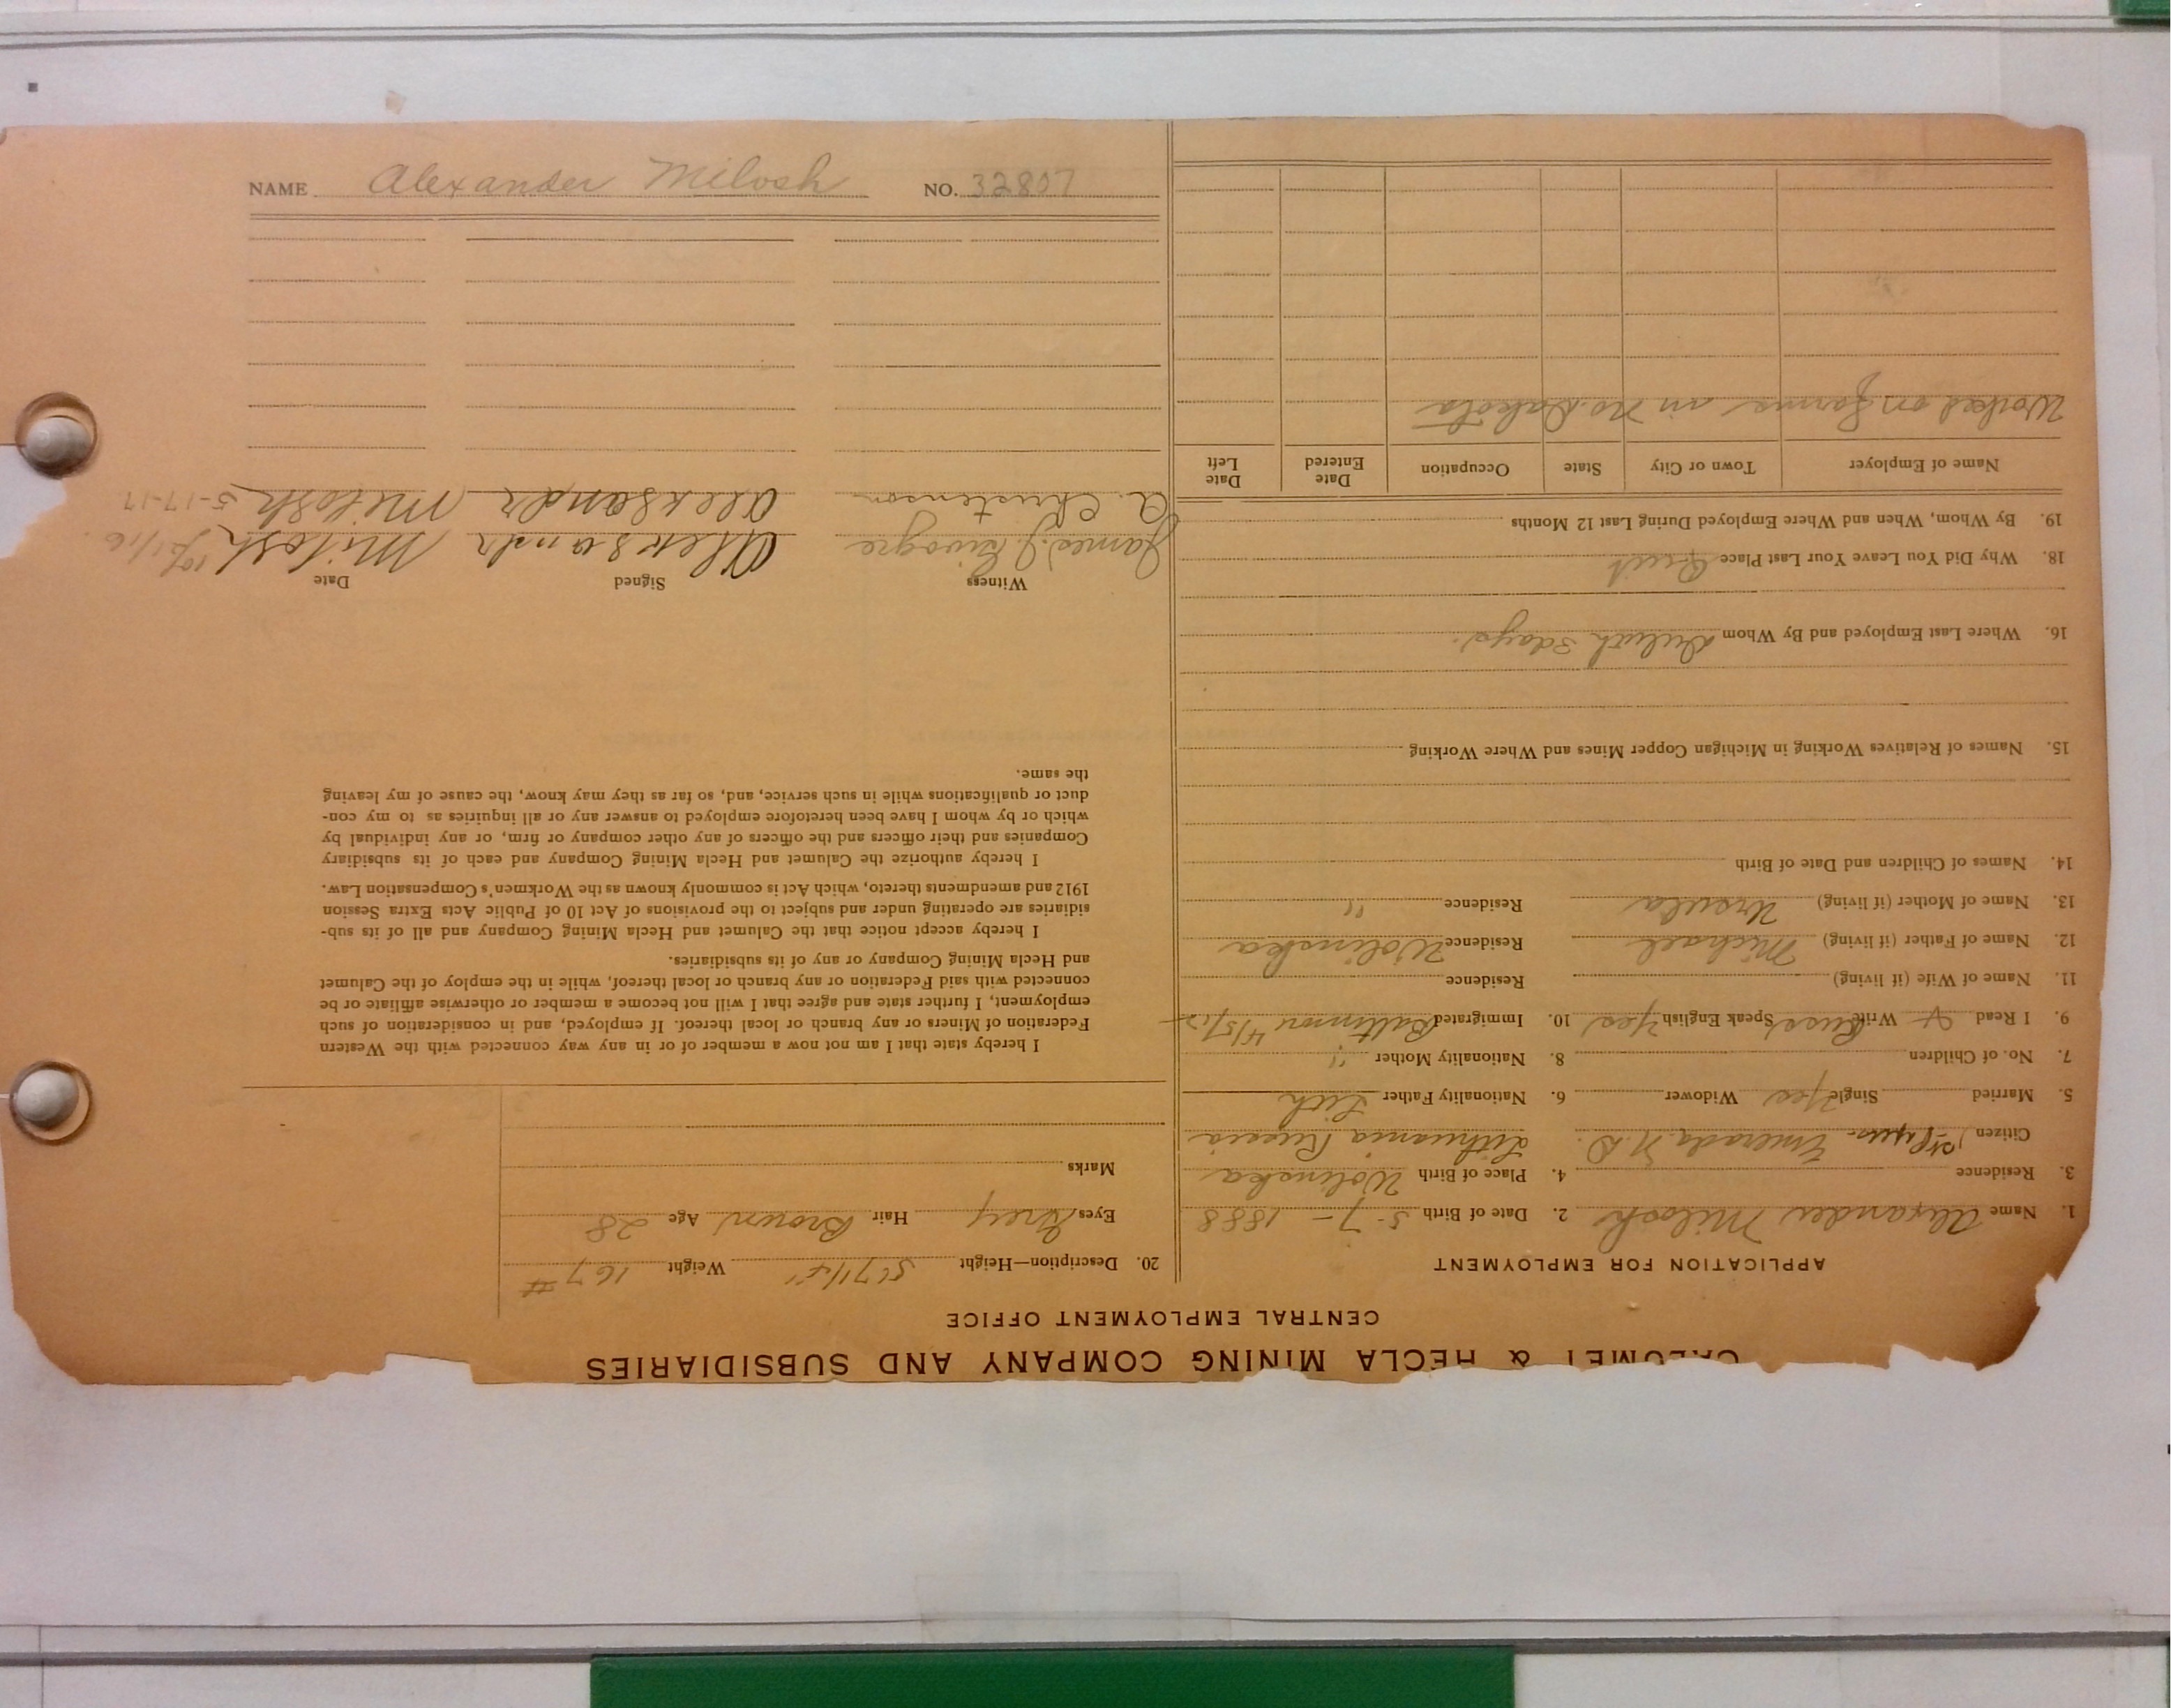 NAME Alexander Milosh NO. 32807
CALUMET & HECLA MINING COMPANY AND SUBSIDIARIES
CENTRAL EMPLOYMENT OFFICE
APPLICATION FOR EMPLOYMENT
1. Name Alexander Milosh 2. Date of Birth 5-7-1888
3. Residence 4. Place of Birth Wolinska
Citizen Emerado N.D. Lithuania Russia
5. Married Single Yes Widower 6. Nationality Father Lith
7. No. of Children 8. Nationality Mother "
9. I Read & Write Russ Speak English Yes 10. Immigrated Baltimore
11. Name of Wife (if living) Residence
12. Name of Father (if living) Michael Residence Wolinska
13. Name of Mother (if living) Ursula Residence "
14. Names of Children and Date of Birth
15. Names of Relatives Working in Michigan Copper Mines and Where Working
16. Where Last Employed and By Whom Duluth 3 days.
18. Why Did You Leave Your Last Place Quit
19. By Whom, When and Where Employed During Last 12 Months
Name of Employer Town or City State Occupation Date Entered Date Left
Worked on farms in No. Dakota
20. Description—Height 5'7 1/4" Weight 167 #
Eyes Grey Hair Brown Age 28
Marks
I hereby state that I am not now a member of or in any way connected with the Western
Federation of Miners or any branch or local thereof. If employed, and in consideration of such
employment, I further state and agree that I will not become a member or otherwise affiliate or be
connected with said Federation or any branch or local thereof, while in the employ of the Calumet
and Hecla Mining Company or any of its subsidiaries.
I hereby accept notice that the Calumet and Hecla Mining Company and all of its sub-
sidiaries are operating under and subject to the provisions of Act 10 of Public Acts Extra Session
1912 and amendments thereto, which Act is commonly known as the Workmen's Compensation Law.
I hereby authorize the Calumet and Hecla Mining Company and each of its subsidiary
Companies and their officers and the officers of any other company or firm, or any individual by
which or by whom I have been heretofore employed to answer any or all inquiries as to my con-
duct or qualifications while in such service, and, so far as they may know, the cause of my leaving
the same.
Witness Signed Date
James J. Aleksandr Milosh
A. Christenson Aleksandr Milosh 5-17-17